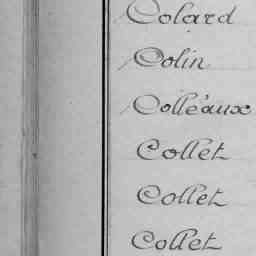 Colard
Colin
Colléaux
Collet
Collet
Collet